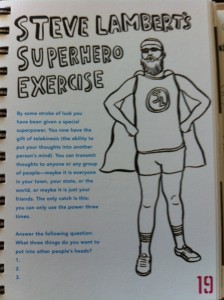 STEVE LAMBERT'S
SUPERHERO
EXERCISE
By some stroke of luck you
have been given a special
superpower. You now have the
gift of telekinesis (the ability
to put your thoughts into another
person's mind). You can transmit
thoughts to anyone or any group
of people—maybe it is everyone
in your town, your state, or the
world, or maybe it is just your
friends. The only catch is this:
you can only use the power three
times.
Answer the following question:
What three things do you want to
put into other people's heads?
1.
2.
3.
SL
19